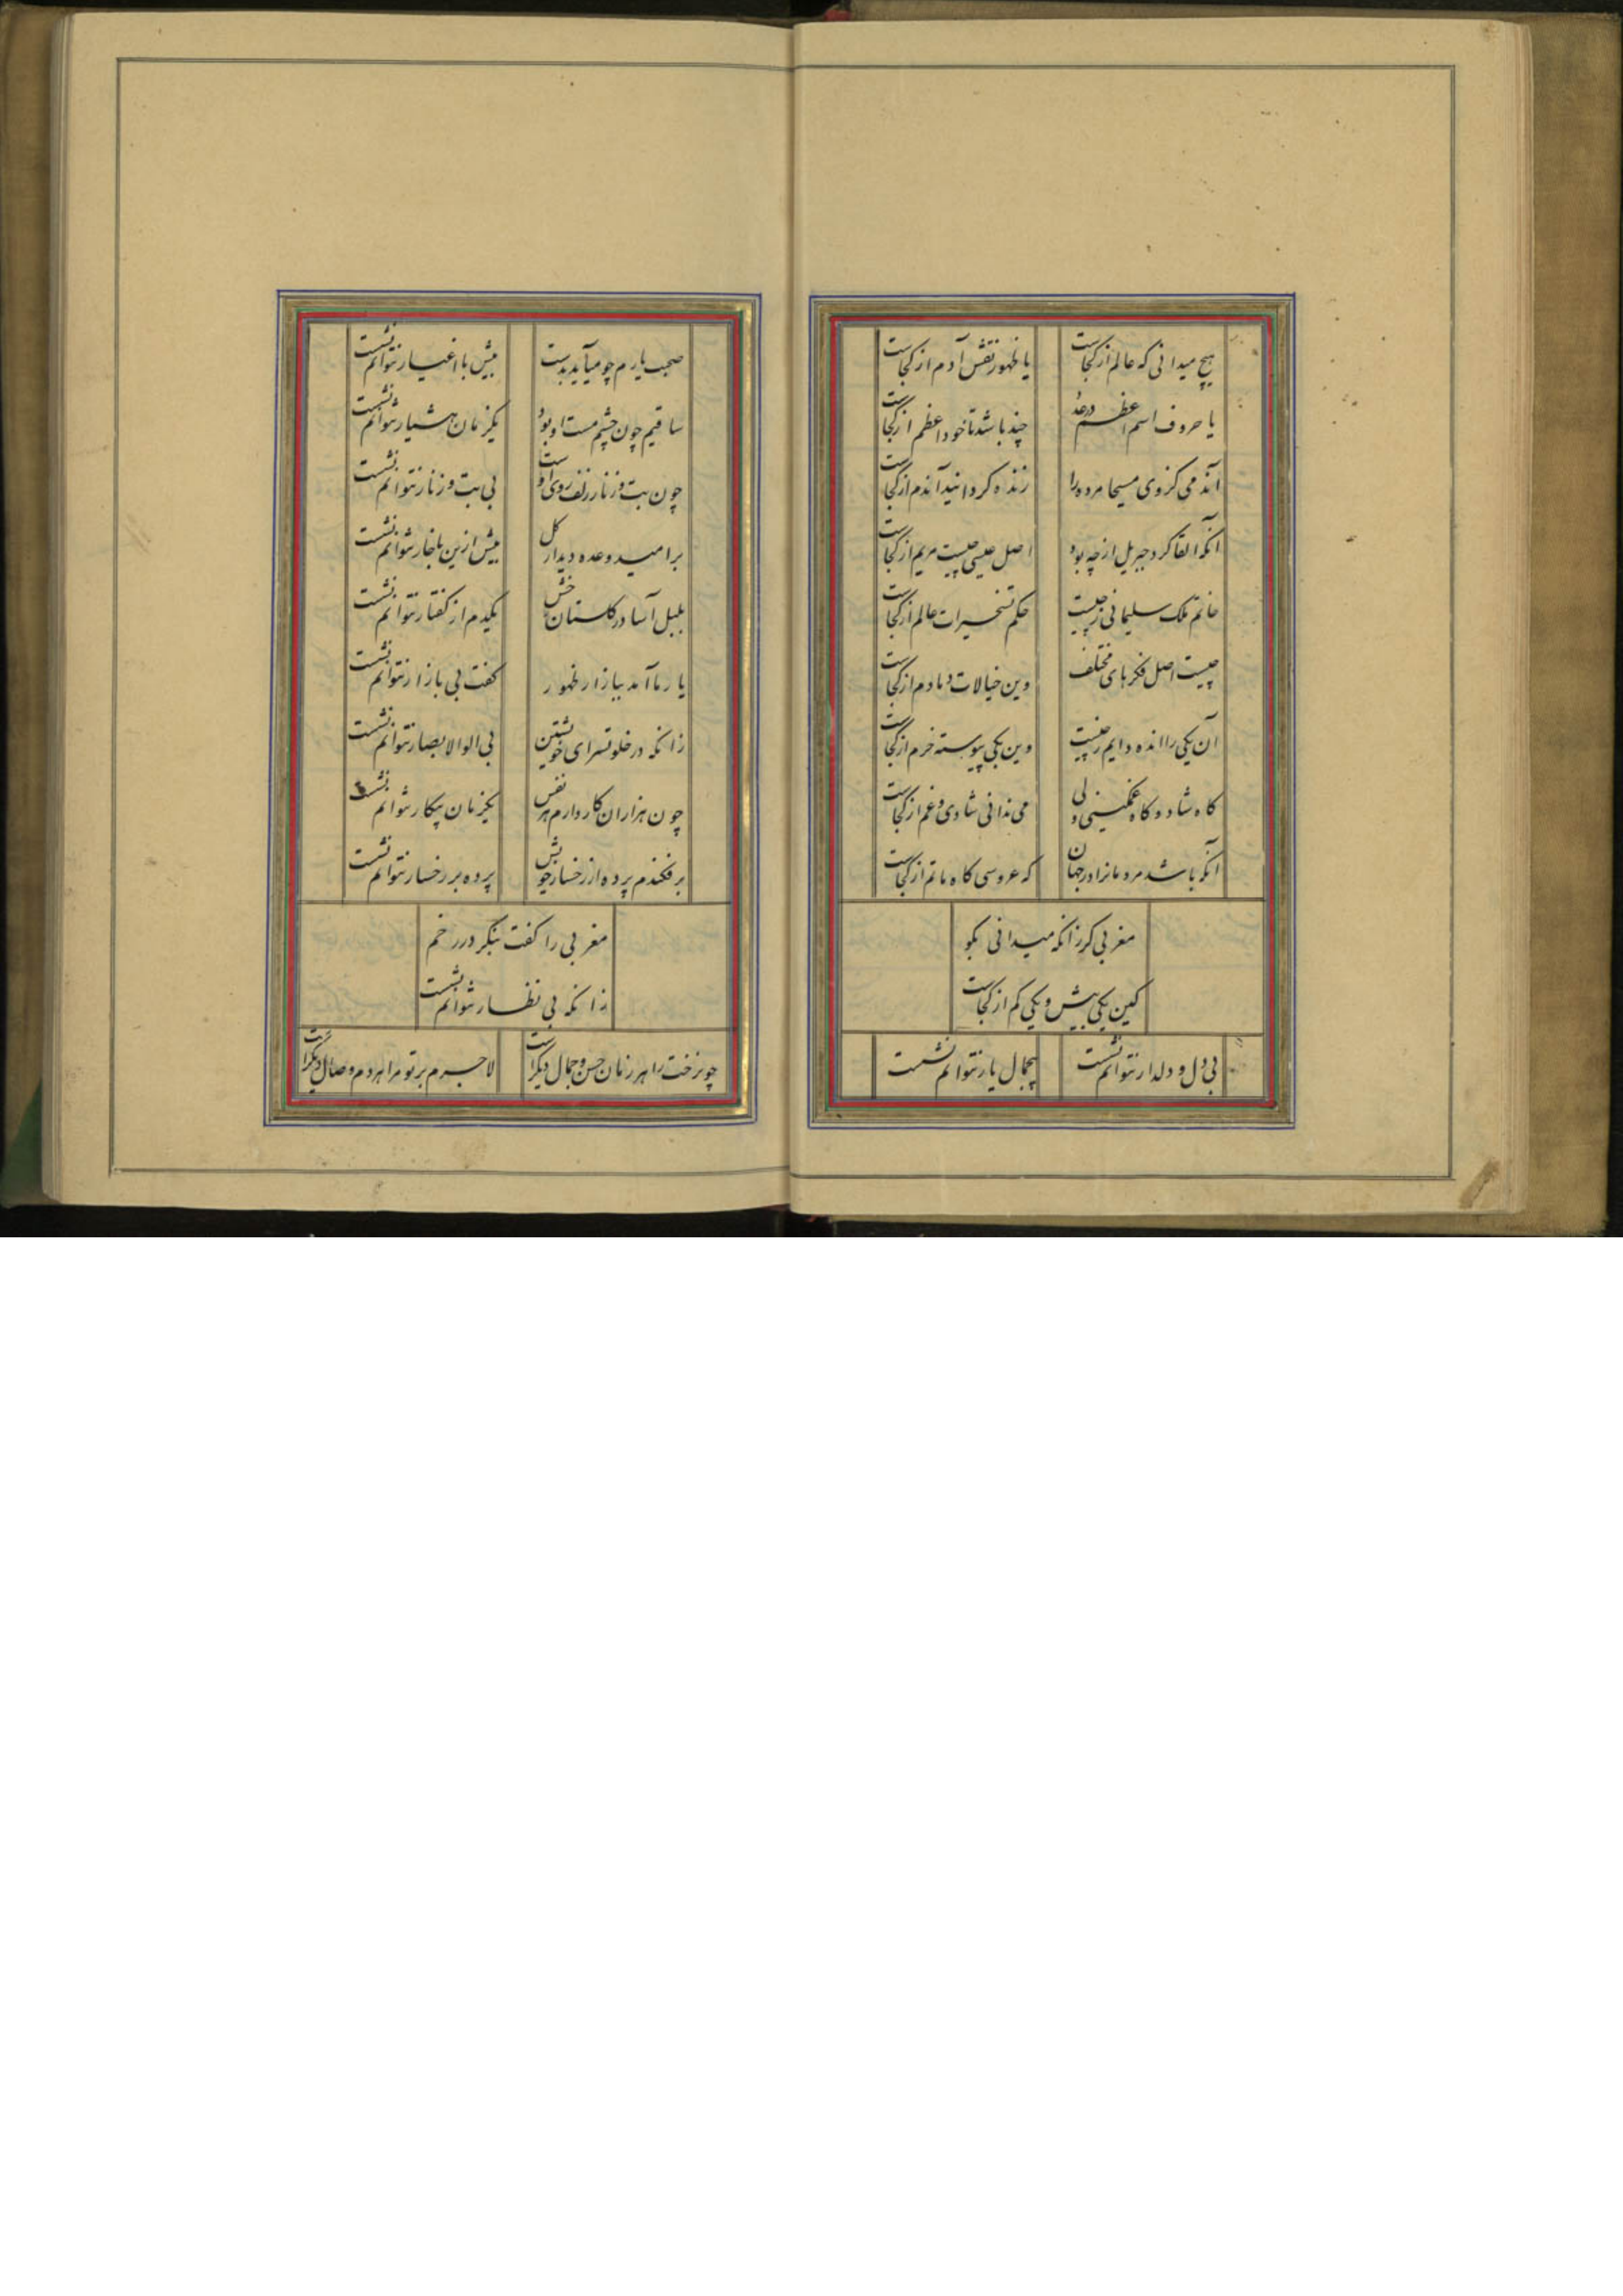 هیچ میدانی که عالم از کجاست یا ظهور نقش آدم از کجاست
یا حروف اسم اعظم در عدد چند باشد تا خود اعظم از کجاست
آندمی کز وی مسیحا مرده را زنده کردانید آندم از کجاست
آنکه القا کرد جبریل از چه بود اصل عیسی چیست مریم از کجاست
خاتم ملک سلیمانی ز چیست حکم تسخیرات عالم از کجاست
چیست اصل فکرهای مختلف وین خیالات دمادم از کجاست
آن یکی را انده دایم ز چیست وین یکی پیوسته خرم از کجاست
کاه شاد و کاه غمکینی ولی می ندانی شادی و غم از کجاست
آنکه باشد مردمانرا در جهان که عروسی کاه ماتم از کجاست
مغربی کر زانکه میدانی بکو
کین یکی بیش و یکی کم از کجاست
بی دل و دلدار نتوانم نشست بیجمال یار نتوانم نشست
صحبت یارم چو میآید بدست بیش با اغیار نتوانم نشست
ساقیم چون چشم مست او بود یکزمان هشیار نتوانم نشست
چون بت و زنار زلف روی اوست بی بت و زنار نتوانم نشست
بر امید وعده دیدار کل بیش ازین با خار نتوانم نشست
بلبل آسا در کلستان خش یکدم از کفتار نتوانم نشست
یار ما آمد ببازار ظهور کفت بی بازار نتوانم نشست
زانکه در خلوتسرای خویشتن بی الوالابصار نتوانم نشست
چون هزاران کار دارم هر نفس یکزمان بیکار نتوانم نشست
بر فکندم پرده از رخسار خویش پرده بر رخسار نتوانم نشست
مغربی را کفت بنکر در رخم
زانکه بی نظار نتوانم نشست
چو رخت را هر زمان حسن و جمال دیکر است لاجرم بر تو مرا هر دم وصال دیکر است